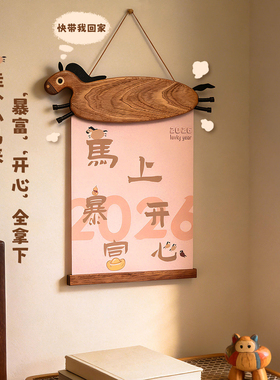 快带我回家
2026
lucky year
馬上
暴富
开心
2026
"暴富"
"开心"
全拿下